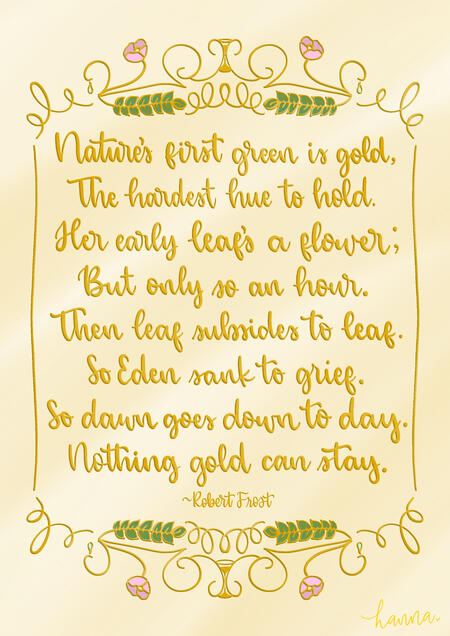 Nature's first green is gold,
The hardest hue to hold.
Her early leaf's a flower;
But only so an hour.
Then leaf subsides to leaf.
So Eden sank to grief.
So dawn goes down to day.
Nothing gold can stay.
~Robert Frost
hanna.